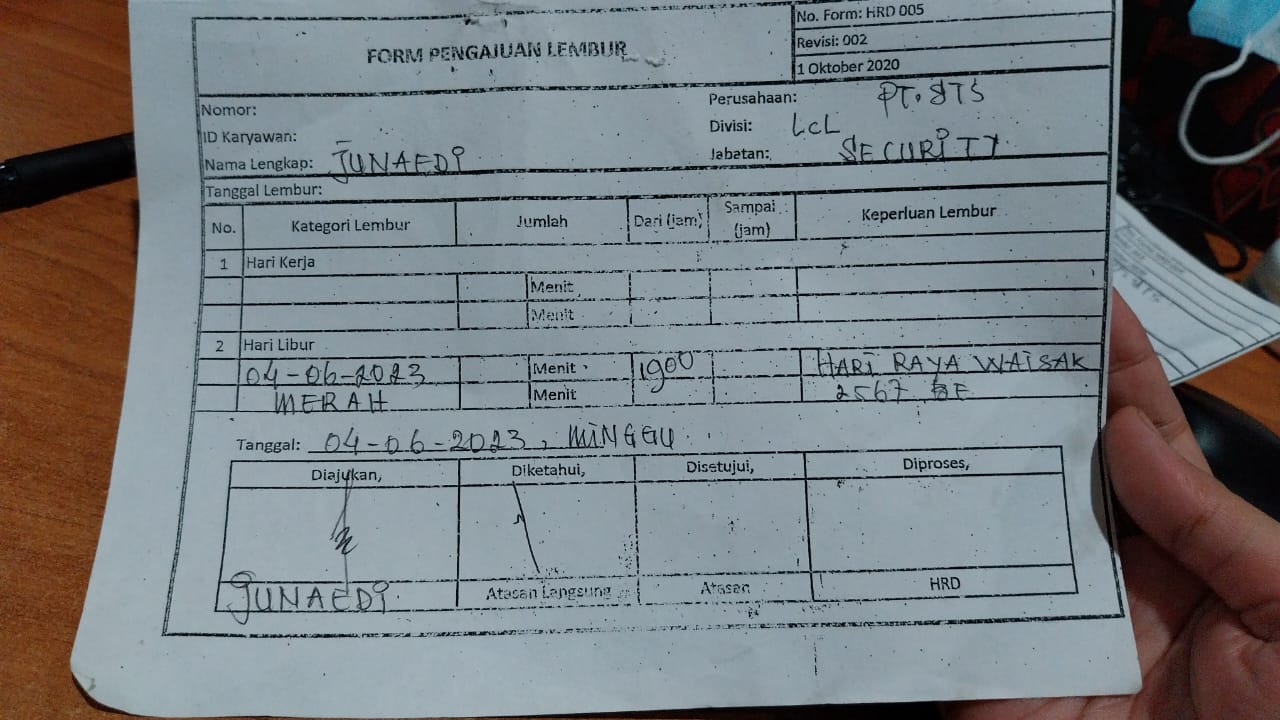 No. Form: HRD 005
FORM PENGAJUAN LEMBUR
Revisi: 002
1 Oktober 2020
Nomor:
Perusahaan: PT. STS
ID Karyawan:
Divisi: LCL
Nama Lengkap: JUNAEDI
Jabatan: SECURITY
Tanggal Lembur:
No. Kategori Lembur Jumlah Dari (jam) Sampai (jam) Keperluan Lembur
1 Hari Kerja
Menit
Menit
2 Hari Libur
04-06-2023 Menit 1900 HARI RAYA WAISAK
MERAH Menit 2567 BE
Tanggal: 04-06-2023, MINGGU
Diajukan, Diketahui, Disetujui, Diproses,
JUNAEDI Atasan Langsung Atasan HRD